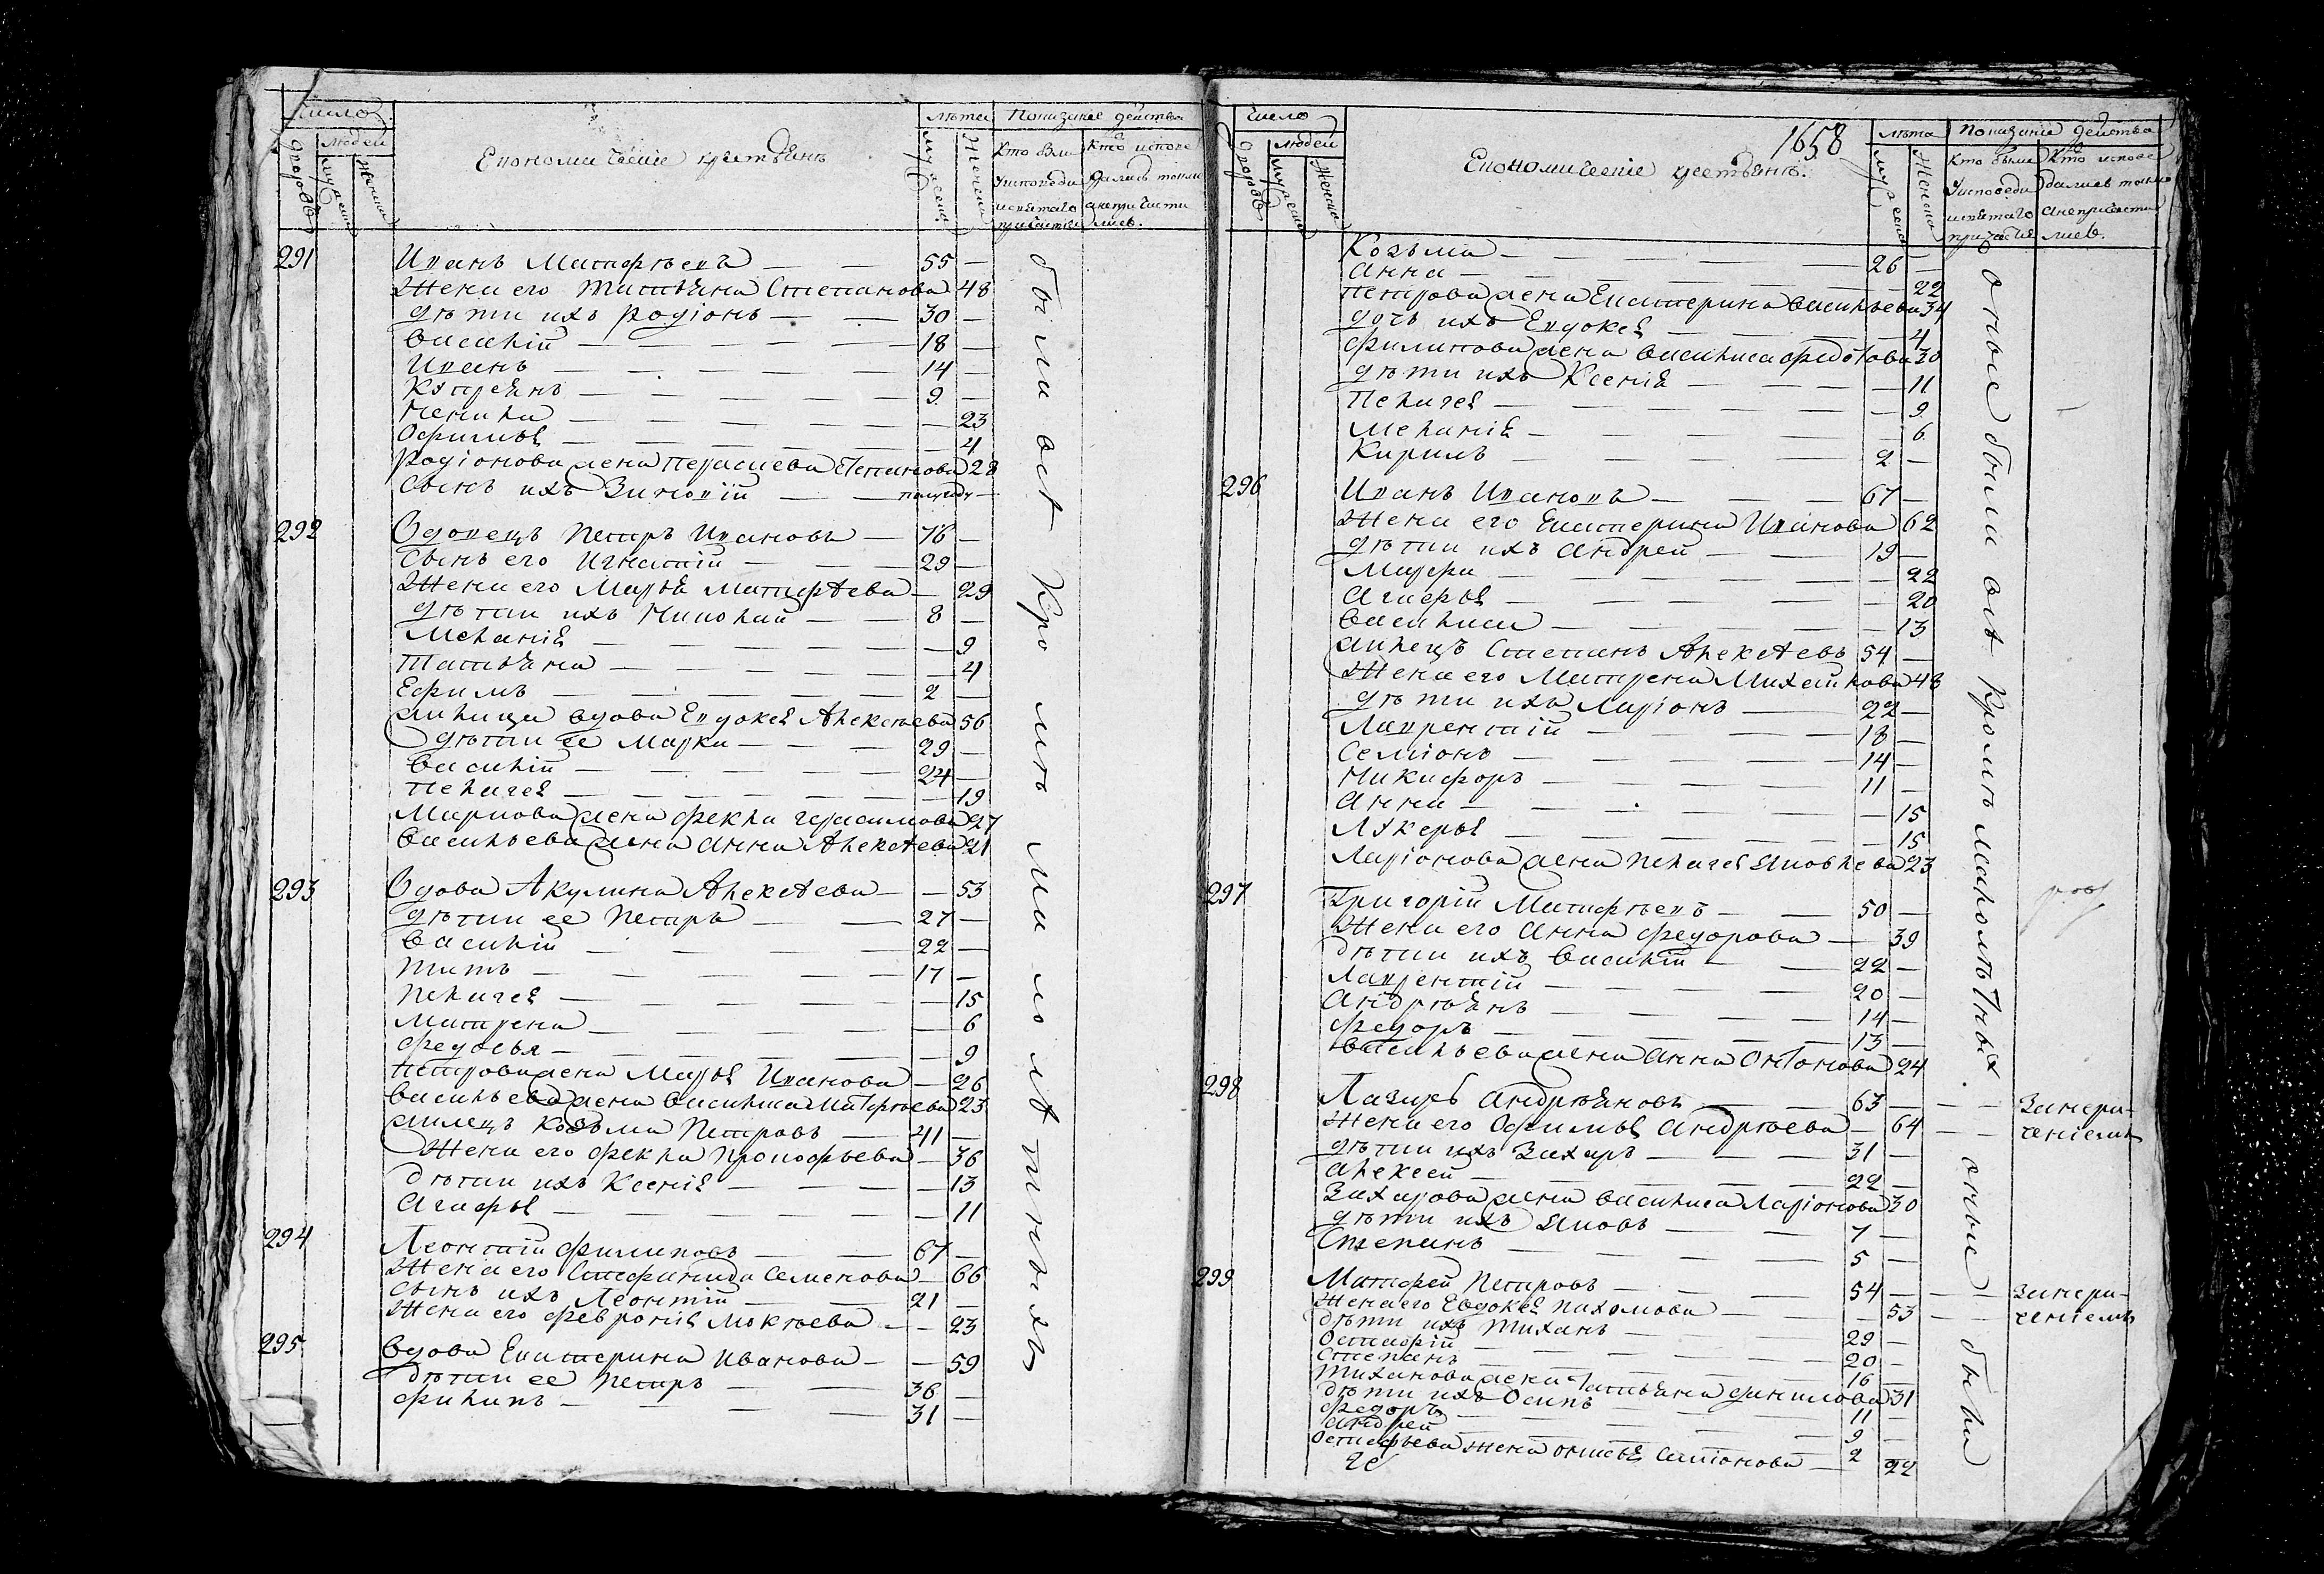 Число
людей
дворовъ
мужеска
женска
Економическiе крестьянѣ
лѣта
мужеска
женска
Показанiе действа
Кто были
Кто испове
Уисповеди
дались токмо
исвятаго
анепричасти
причастiя
лись.
291
Иванъ Матфѣевъ — — 55 —
Жена его Татьяна Степанова 48
дѣти ихъ Родiонъ — — 30 —
Василiй — — — — — 18 —
Иванъ — — — — — 14 —
Купреянъ — — — — — 9 —
Ненила — — — — — 23
Офимья — — — — — 4
Родiонова жена Перасцева Степанова 28
Сынъ ихъ Зиновiй — — полугоду —
292
Вдовецъ Петръ Ивановъ — 76 —
Сынъ его Игнатiй — — — 29 —
Жена его Марья Матфѣева — 29
дѣти ихъ Николай — — 8 —
Меланiя — — — — — 9
Татьяна — — — — — 4
Ефимъ — — — — — 2 —
вдова Евдокея Алексѣева 56
дѣти ее Марка — — — 29 —
Василiй — — — — — 24 —
Пелагея — — — — — 19
Маркова жена Фекла Герасимова 27
Васильева жена Анна Алексѣева 21
293
Вдова Акулина Алексѣева — — 53
дѣти ее Петръ — — 27 —
Василiй — — — — 22 —
Титъ — — — — — 17 —
Пелагея — — — — — 15
Матрена — — — — — 6
Федосья — — — — — 9
Петрова жена Марья Иванова — 26
Васильева жена Василиса Матфѣева 23
Козьма Петровъ — 41 —
Жена его Фекла Прокофьева — 36
Дѣти ихъ Ксенiя — — — — 13
Агафья — — — — — 11
294
Леонтiй Филиповъ — — 67 —
Жена его Стефанида Семенова — 66
Сынъ ихъ Леонтiй — — 21 —
Жена его Феврониѣ Мокѣева — — 23
295
Вдова Екатерина Иванова — — 59
Дѣти ее Петръ — — 36 —
Филипъ — — — — 31 —
были всѣ кромѣ малолѣтныхъ
1658
Число
людей
дворовъ
мужеска
женска
Економическiе крестьянѣ.
лѣта
мужеска
женска
Показанiе действа
Кто были
Кто испове
Уисповеди
дались токмо
исвятаго
анепричасти
причастiя
лись.
Козьма — — — — 26 —
Анна — — — — — 22
Петрова жена Екатерина Васильева 34
дочь ихъ Евдокея — — — 4
Филипова жена Василиса Федотова 30
дѣти ихъ Ксенiя — — — 11
Пелагея — — — — — 9
Меланiя — — — — — 6
Кирилъ — — — — 2 —
296
Иванъ Ивановъ — — — 67 —
Жена его Екатерина Иванова 62
дѣти ихъ Андрей — — 19 —
Марфа — — — — — 22
Агафья — — — — — 20
Василиса — — — — — 13
Степанъ Алексѣевъ 54 —
Жена его Матрена Михайлова 48
дѣти ихъ Ларiонъ — 22 —
Лаврентiй — — — 18 —
Семiонъ — — — — 14 —
Никифоръ — — — — 11 —
Анна — — — — — 15
Лукерья — — — — — 15
Ларiонова жена Пелагея Яковлева 23
297
Григорiй Матфѣевъ — — 50 —
Жена его Анна Федорова — 39
Дѣти ихъ Василiй — — 22 —
Лаврентiй — — — — 20 —
Андрѣянъ — — — — 14 —
Федоръ — — — — 13 —
Васильева жена Анна Онтонова 24
298
Лазарь Андрѣяновъ — — 63 — — —
Жена его Офимья Андрѣева — 64 — —
дѣти ихъ Захаръ — — — 31 —
Алексей — — — — 22 —
Захарова жена Василиса Ларiонова 30
дѣти ихъ Яковъ — — 7 —
Степанъ — — — — 5 —
299
Матфей Петровъ — — — 54 — — —
Жена его Евдокея Пахомова — — 53 — —
Дѣти ихъ Тиханъ — — 29 —
Остафiй — — — — 20 —
Степанъ — — — — 16 —
Тиханова жена Татьяна Данилова 31
Дѣти ихъ Осипъ — — — 11 —
Федоръ — — — — 9 —
Андрей — — — — 2
Остафьева жена Семiонова — 22
оные были всѣ кромѣ малолѣтных.
оные были